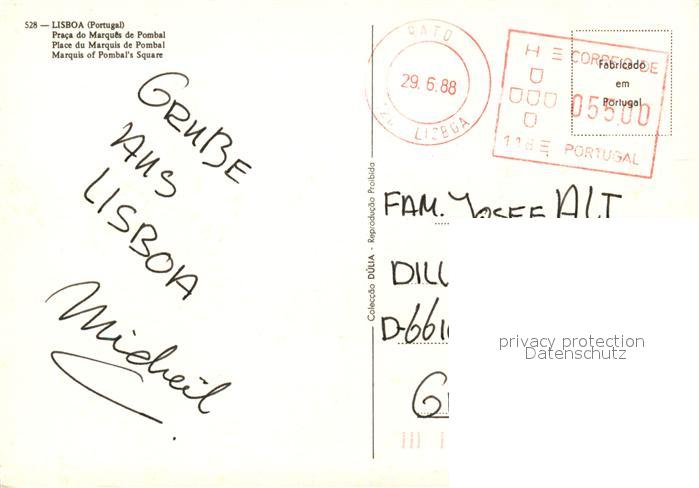 528 — LISBOA (Portugal)
Praça do Marquês de Pombal
Place du Marquis de Pombal
Marquis of Pombal's Square
GRUßE
AUS
LISBOA
Micheil
RATO
29.6.88
LISBOA
CORREIO DE
055,00
PORTUGAL
Fabricado
em
Portugal
Colecção DÚLIA - Reprodução Proibida
FAM. JOSEF ALT
DILL
D-661
G
privacy protection
Datenschutz